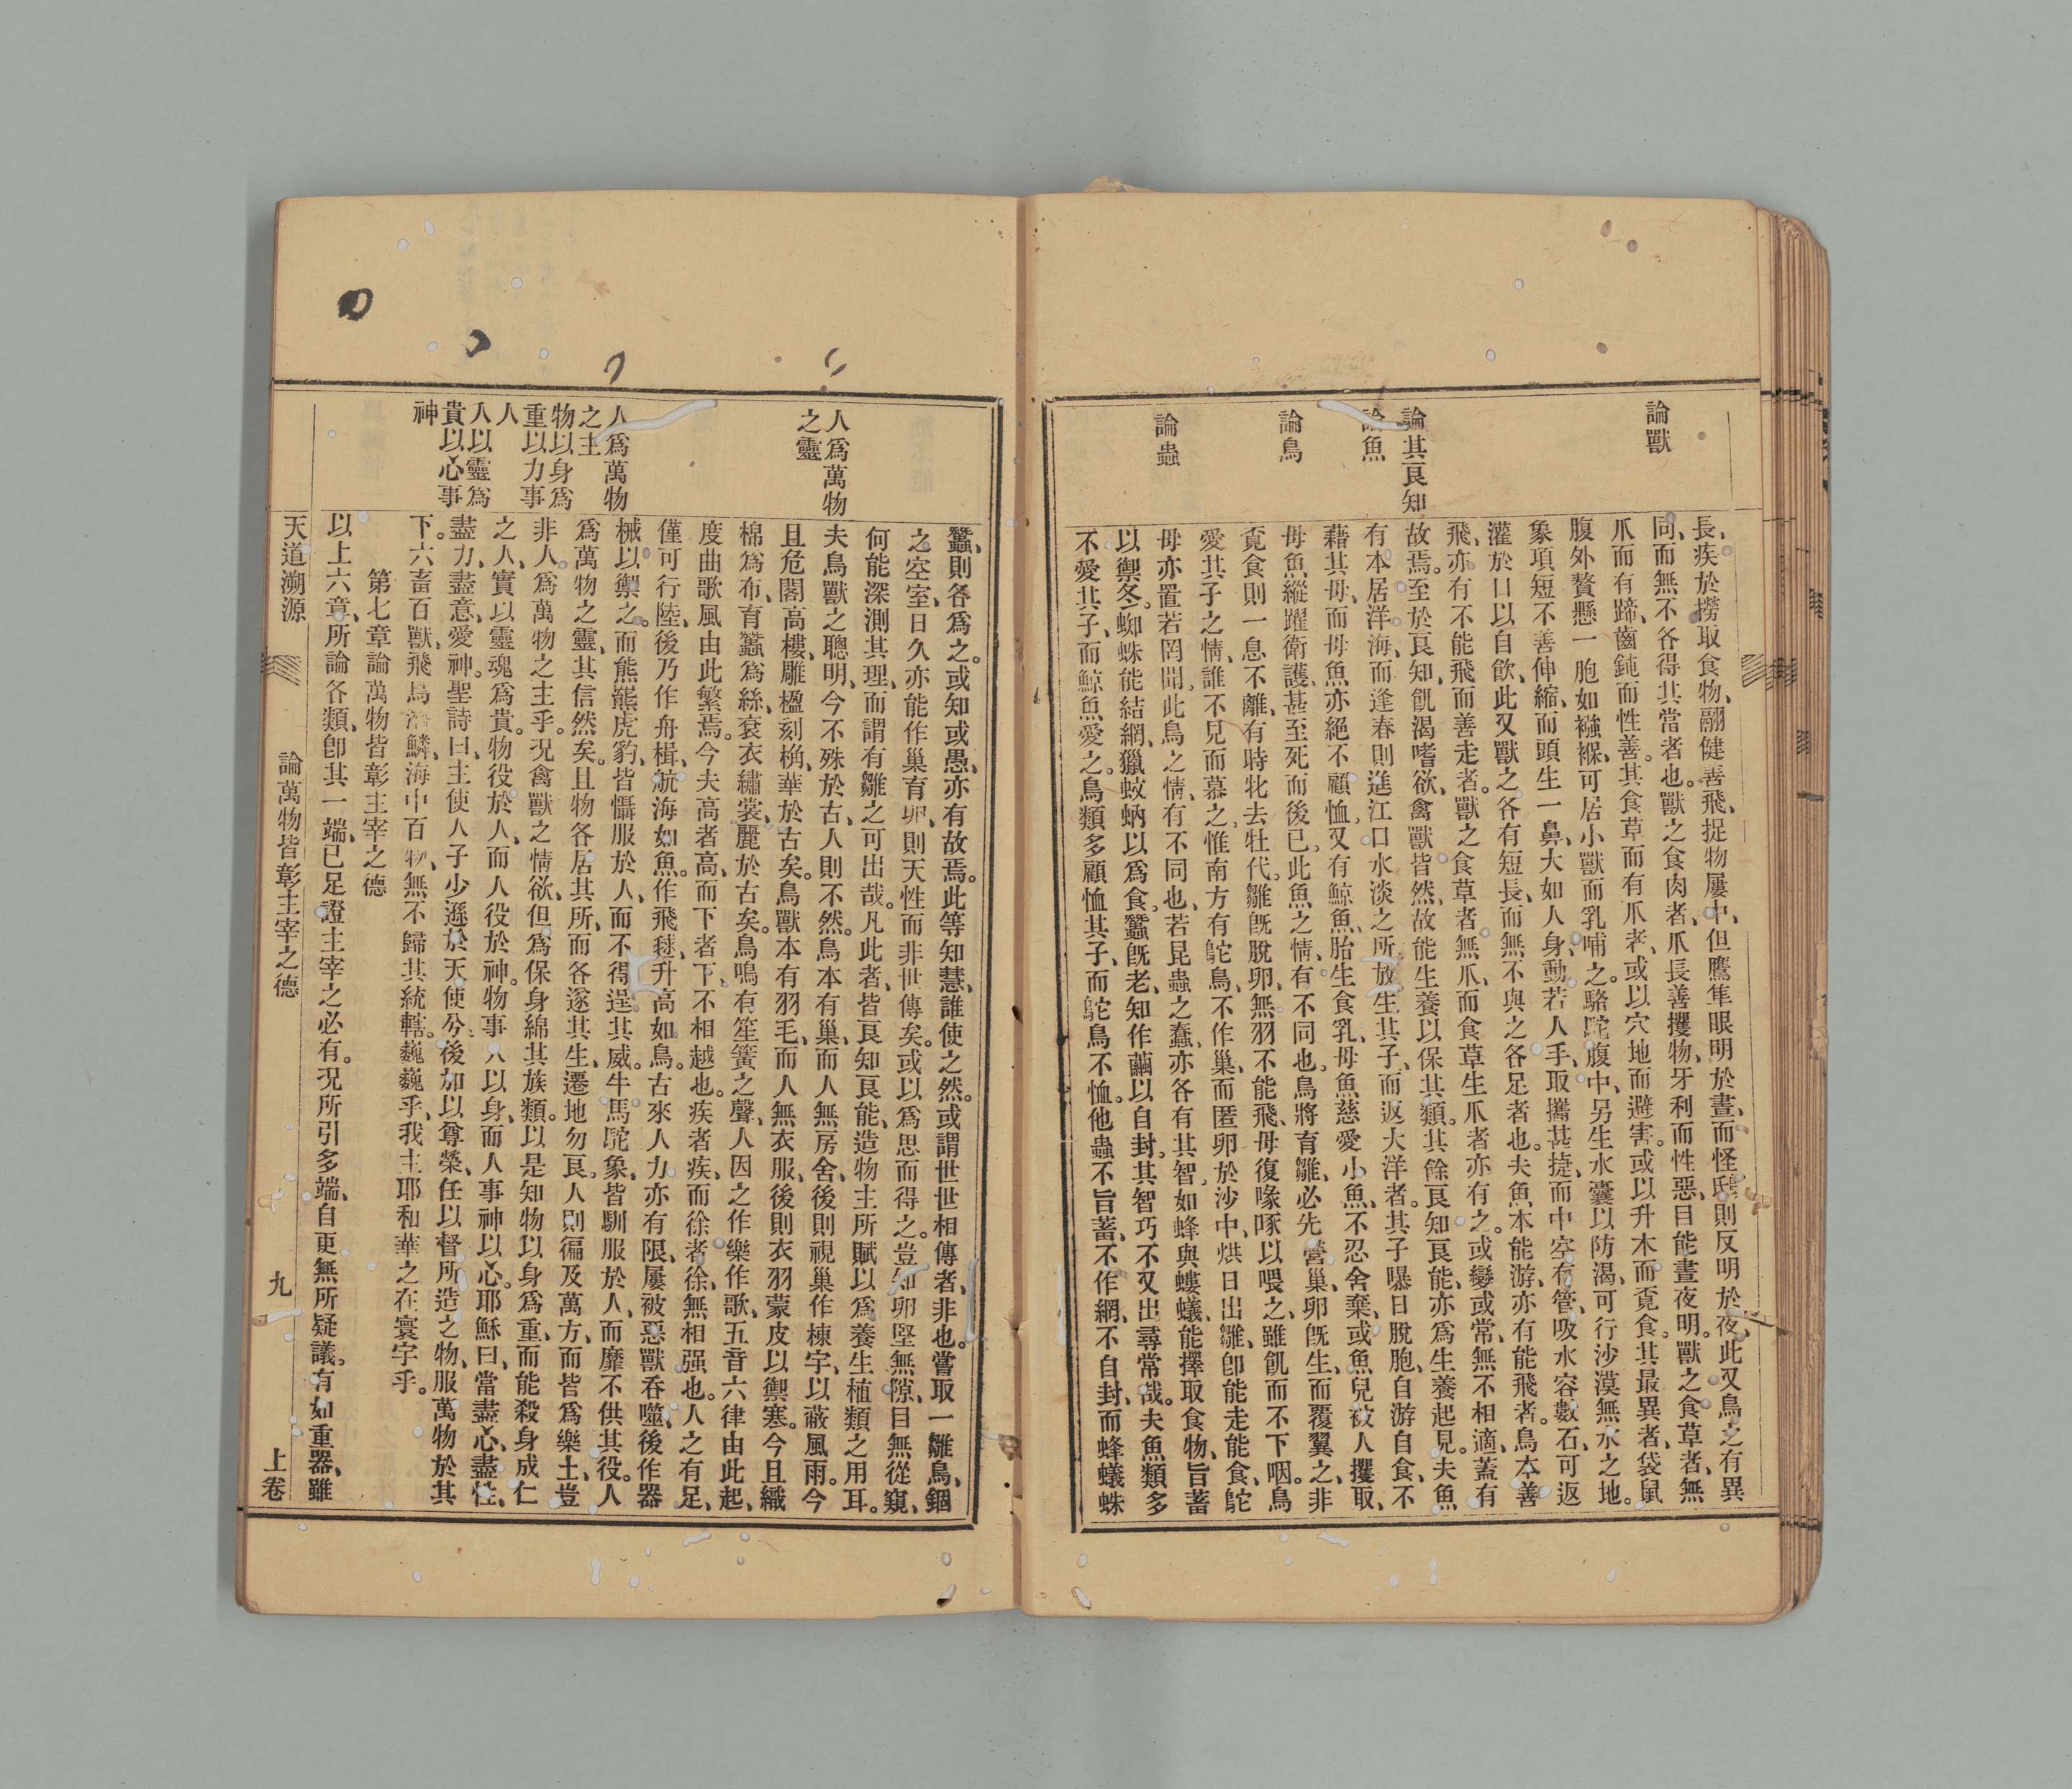 論獸
論其良知
論魚
論鳥
論蟲
長、疾於撈取食物、翮健善飛、捉物屢中、但鷹隼眼明於晝、而怪鴟則反明於夜、此又鳥之有異
同、而無不各得其當者也。獸之食肉者、爪長善攫物、牙利而性惡、目能晝夜明。獸之食草者、無
爪而有蹄、齒鈍而性善。其食草而有爪者、或以穴地而避害。或以升木而覓食。其最異者、袋鼠
腹外贅懸一胞如襁褓、可居小獸而乳哺之。駱駝腹中、另生水囊以防渴、可行沙漠無水之地。
象項短不善伸縮、而頭生一鼻、大如人身、動若人手、取攜甚捷、而中空有管、吸水容數石、可返
灌於口以自飲、此又獸之各有短長、而無不與之各足者也。夫魚本能游、亦有能飛者。鳥本善
飛、亦有不能飛而善走者。獸之食草者無爪、而食草生爪者亦有之。或變或常、無不相適、蓋有
故焉。至於良知、飢渴嗜欲、禽獸皆然、故能生養以保其類。其餘良知良能、亦爲生養起見。夫魚
有本居洋海、而逢春則進江口水淡之所、放生其子、而返大洋者。其子曝日脫胞、自游自食、不
藉其母、而母魚亦絕不顧恤。又有鯨魚、胎生食乳、母魚慈愛小魚、不忍舍棄、或魚兒被人攫取、
母魚縱躍衛護、甚至死而後已。此魚之情、有不同也。鳥將育雛、必先營巢、卵旣生、而覆翼之、非
覓食則一息不離、有時牝去牡代。雛旣脫卵、無羽不能飛、母復喙啄以喂之、雖飢而不下咽。鳥
愛其子之情、誰不見而慕之。惟南方有鴕鳥、不作巢、而匿卵於沙中、烘日出雛、卽能走能食、鴕
母亦置若罔聞。此鳥之情、有不同也、若昆蟲之蠢、亦各有其智。如蜂與螻蟻、能擇取食物、旨蓄
以禦冬。蜘蛛能結網、獵蚊蚋以爲食。蠶旣老、知作繭以自封。其智巧不又出尋常哉。夫魚類多
不愛其子、而鯨魚愛之。鳥類多顧恤其子、而鴕鳥不恤。他蟲不旨蓄、不作網、不自封、而蜂蟻蛛
人爲萬物
之靈
人爲萬物
之主
物以身爲
重以力事
人
人以靈爲
貴以心事
神
蠶、則各爲之。或知或愚、亦有故焉。此等知慧、誰使之然。或謂世世相傳者、非也。嘗取一雛鳥、錮
之空室、日久亦能作巢育卵、則天性而非世傳矣。或以爲思而得之。豈知卵堅無隙、目無從窺、
何能深測其理、而謂有雛之可出哉。凡此者、皆良知良能、造物主所賦以爲養生植類之用耳。
夫鳥獸之聰明、今不殊於古、人則不然。鳥本有巢、而人無房舍、後則視巢作棟宇、以蔽風雨。今
且危閣高樓、雕楹刻桷、華於古矣。鳥獸本有羽毛、而人無衣服、後則衣羽蒙皮以禦寒。今且織
棉爲布、育蠶爲絲、袞衣繡裳、麗於古矣。鳥鳴有笙簧之聲、人因之作樂作歌、五音六律由此起、
度曲歌風由此繁焉。今夫高者高、而下者下、不相越也。疾者疾、而徐者徐、無相强也。人之有足、
僅可行陸、後乃作舟楫、航海如魚。作飛毬、升高如鳥。古來人力亦有限、屢被惡獸吞噬、後作器
械以禦之。而熊羆虎豹、皆懾服於人、而不得逞其威。牛馬駝象、皆馴服於人、而靡不供其役。人
爲萬物之靈、其信然矣。且物各居其所、而各遂其生、遷地勿良。人則徧及萬方、而皆爲樂土、豈
非人爲萬物之主乎。况禽獸之情欲、但爲保身綿其族類。以是知物以身爲重、而能殺身成仁
之人、實以靈魂爲貴。物役於人、而人役於神。物事人以身、而人事神以心。耶穌曰、當盡心、盡性、
盡力、盡意、愛神。聖詩曰、主使人子少遜於天使兮、後加以尊榮、任以督所造之物、服萬物於其
下。六畜百獸、飛鳥潛鱗、海中百物、無不歸其統轄。巍巍乎、我主耶和華之在寰宇乎。
第七章論萬物皆彰主宰之德
以上六章、所論各類、卽其一端、已足證主宰之必有。況所引多端、自更無所疑議。有如重器、雖
天道溯源
論萬物皆彰主宰之德
九
上卷